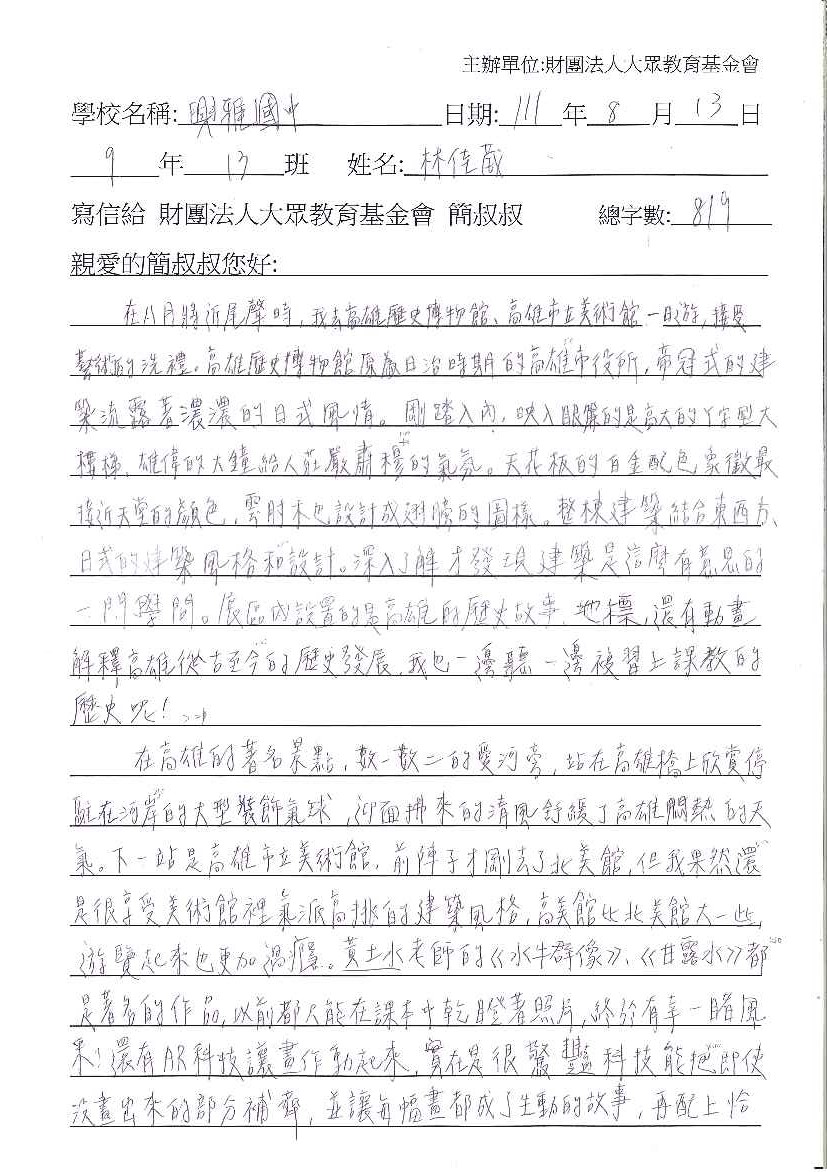 主辦單位:財團法人大眾教育基金會
學校名稱: 興雅國中 日期: 111 年 8 月 13 日
9 年 13 班 姓名: 林佳葳
寫信給 財團法人大眾教育基金會 簡叔叔 總字數: 819
親愛的簡叔叔您好:
在八月將近尾聲時,我去高雄歷史博物館、高雄市立美術館一日遊,接受
藝術的洗禮。高雄歷史博物館原為日治時期的高雄市役所,帝冠式的建
築流露著濃濃的日式風情。剛踏入內,映入眼簾的是高大的Y字型大
樓梯、雄偉的大鐘給人莊嚴肅穆的氣氛。天花板的白金配色象徵最
接近天堂的顏色,雲肘木也設計成翅膀的圖樣。整棟建築結合東西方、
日式的建築風格和設計。深入了解才發現建築是這麼有意思的
一門學問。展區內設置的是高雄的歷史故事、地標,還有動畫
解釋高雄從古至今的歷史發展,我也一邊聽一邊複習上課教的
歷史呢!
在高雄的著名景點,數一數二的愛河旁,站在高雄橋上欣賞停
駐在河岸的大型裝飾氣球,迎面拂來的清風舒緩了高雄悶熱的天
氣。下一站是高雄市立美術館,前陣子才剛去了北美館,但我果然還
是很享受美術館裡氣派高挑的建築風格,高美館比北美館大一些,
遊覽起來也更加過癮。黃土水老師的《水牛群像》、《甘露水》都
是著名的作品,以前都只能在課本中乾瞪著照片,終於有幸一睹風
采!還有AR科技讓畫作動起來,實在是很驚豔科技能把即使
沒畫出來的部分補齊,並讓每幅畫都成了生動的故事,再配上恰